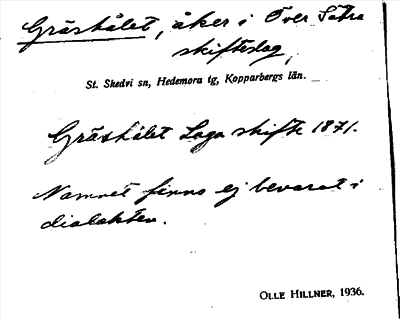 Gräshålet, åker i Över Sätra
skifteslag,
St. Skedvi sn, Hedemora tg, Kopparbergs län.
Gräshålet Laga skifte 1871.
Namnet finns ej bevarat i
dialekten.
OLLE HILLNER, 1936.